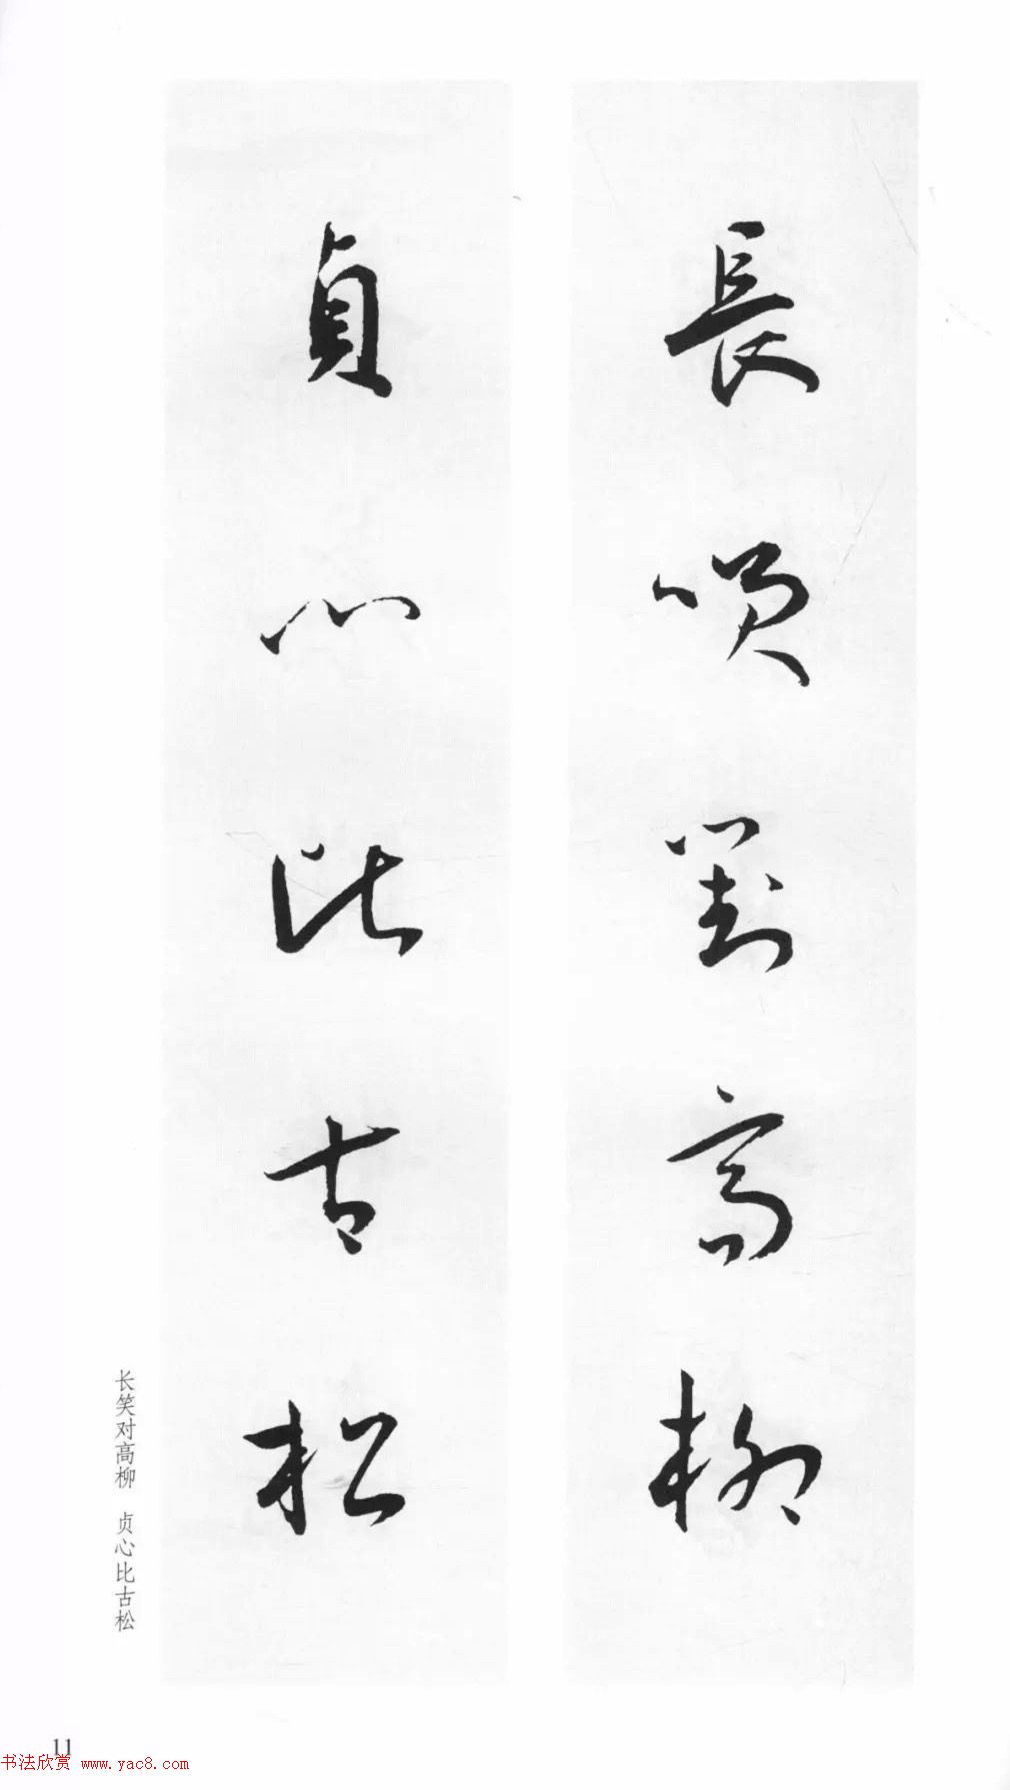 長咲對高柳
貞心比古松
长笑对高柳 贞心比古松
11
书法欣赏 www.yac8.com